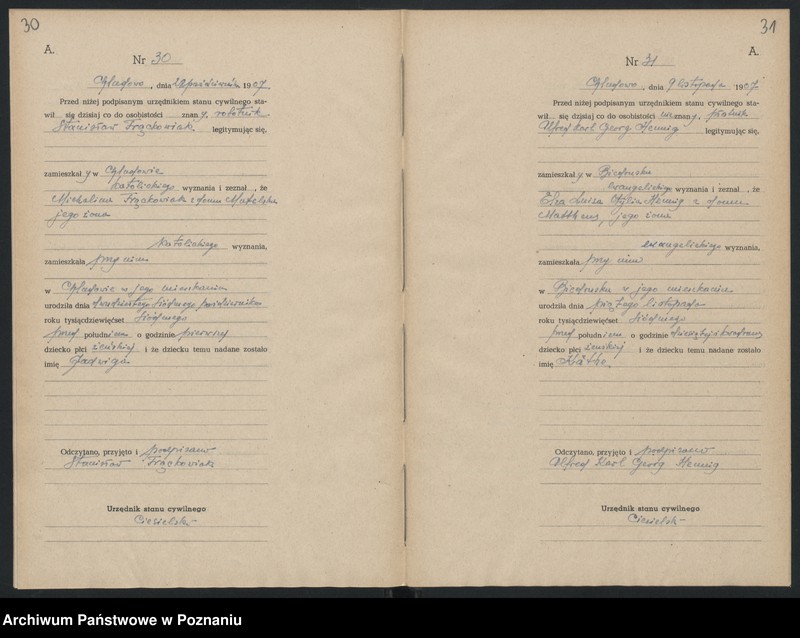 30
A.
Nr 30
, dnia 28 października 1907.
Przed niżej podpisanym urzędnikiem stanu cywilnego sta-
wił się dzisiaj co do osobistości znany, robotnik
Stanisław Frąckowiak, legitymując się,
zamieszkały w
katolickiego wyznania i zeznał, że
Michalina Frąckowiak z domu
jego żona
katolickiego wyznania,
zamieszkała przy nim
w w jego mieszkaniu
urodziła dnia dwudziestego siódmego października
roku tysiącdziewięćset siódmego
przed południem o godzinie pierwszej
dziecko płci żeńskiej i że dziecku temu nadane zostało
imię Jadwiga
Odczytano, przyjęto i podpisano
Stanisław Frąckowiak
Urzędnik stanu cywilnego
Ciesielski
31
A.
Nr 31
, dnia 9 listopada 1907
Przed niżej podpisanym urzędnikiem stanu cywilnego sta-
wił się dzisiaj co do osobistości nieznany,
Alfred Karl Georg Hennig legitymując się,
zamieszkały w Biedrusku
ewangelickiego wyznania i zeznał, że
Elza Luiza Hennig z domu
Mattheus, jego żona
ewangelickiego wyznania,
zamieszkała przy nim
w Biedrusku w jego mieszkaniu
urodziła dnia piątego listopada
roku tysiącdziewięćset siódmego
przed południem o godzinie
dziecko płci żeńskiej i że dziecku temu nadane zostało
imię Käthe.
Odczytano, przyjęto i podpisano
Alfred Karl Georg Hennig
Urzędnik stanu cywilnego
Ciesielski
Archiwum Państwowe w Poznaniu